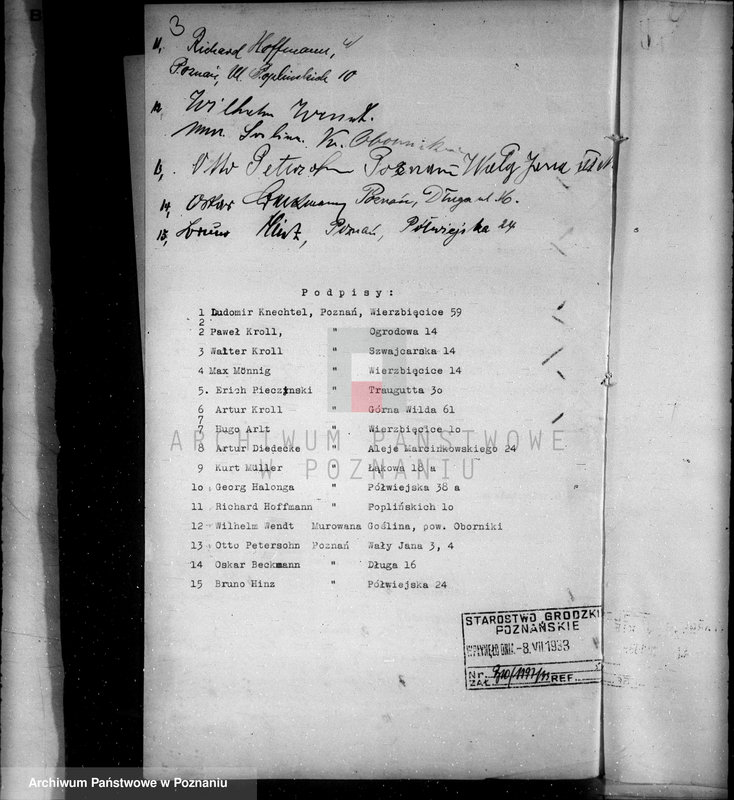 3
11, Richard Hoffmann,
Poznań, Ul. Poplińskich 10
12. Wilhelm Wendt.
Mur. Goślina. Kr. Obornik
13, Otto Petersohn Poznań Wały Jana III
14, Oskar Beckmann Poznań, Długa ul 16.
15, Bruno Hinz, Poznań, Półwiejska 24
Podpisy:
1 Ludomir Knechtel, Poznań, Wierzbięcice 59
2
2 Paweł Kroll, " Ogrodowa 14
3 Walter Kroll " Szwajcarska 14
4 Max Mönnig " Wierzbięcice 14
5. Erich Pieczynski " Traugutta 3o
6 Artur Kroll " Górna Wilda 61
7
7 Hugo Arlt " Wierzbięcice 1o
8 Artur Diedecke " Aleje Marcinkowskiego 24
9 Kurt Müller " Łąkowa 18 a
1o Georg Halonga " Półwiejska 38 a
11 Richard Hoffmann " Poplińskich 1o
12 Wilhelm Wendt Murowana Goślina, pow. Oborniki
13 Otto Petersohn Poznań Wały Jana 3, 4
14 Oskar Beckmann " Długa 16
15 Bruno Hinz " Półwiejska 24
ARCHIWUM PAŃSTWOWE
W POZNANIU
STAROSTWO GRODZKI
POZNAŃSKIE
WPŁYNĘŁO DNIA -8. VII 1933
Nr.
ZAŁ. REF.
Archiwum Państwowe w Poznaniu